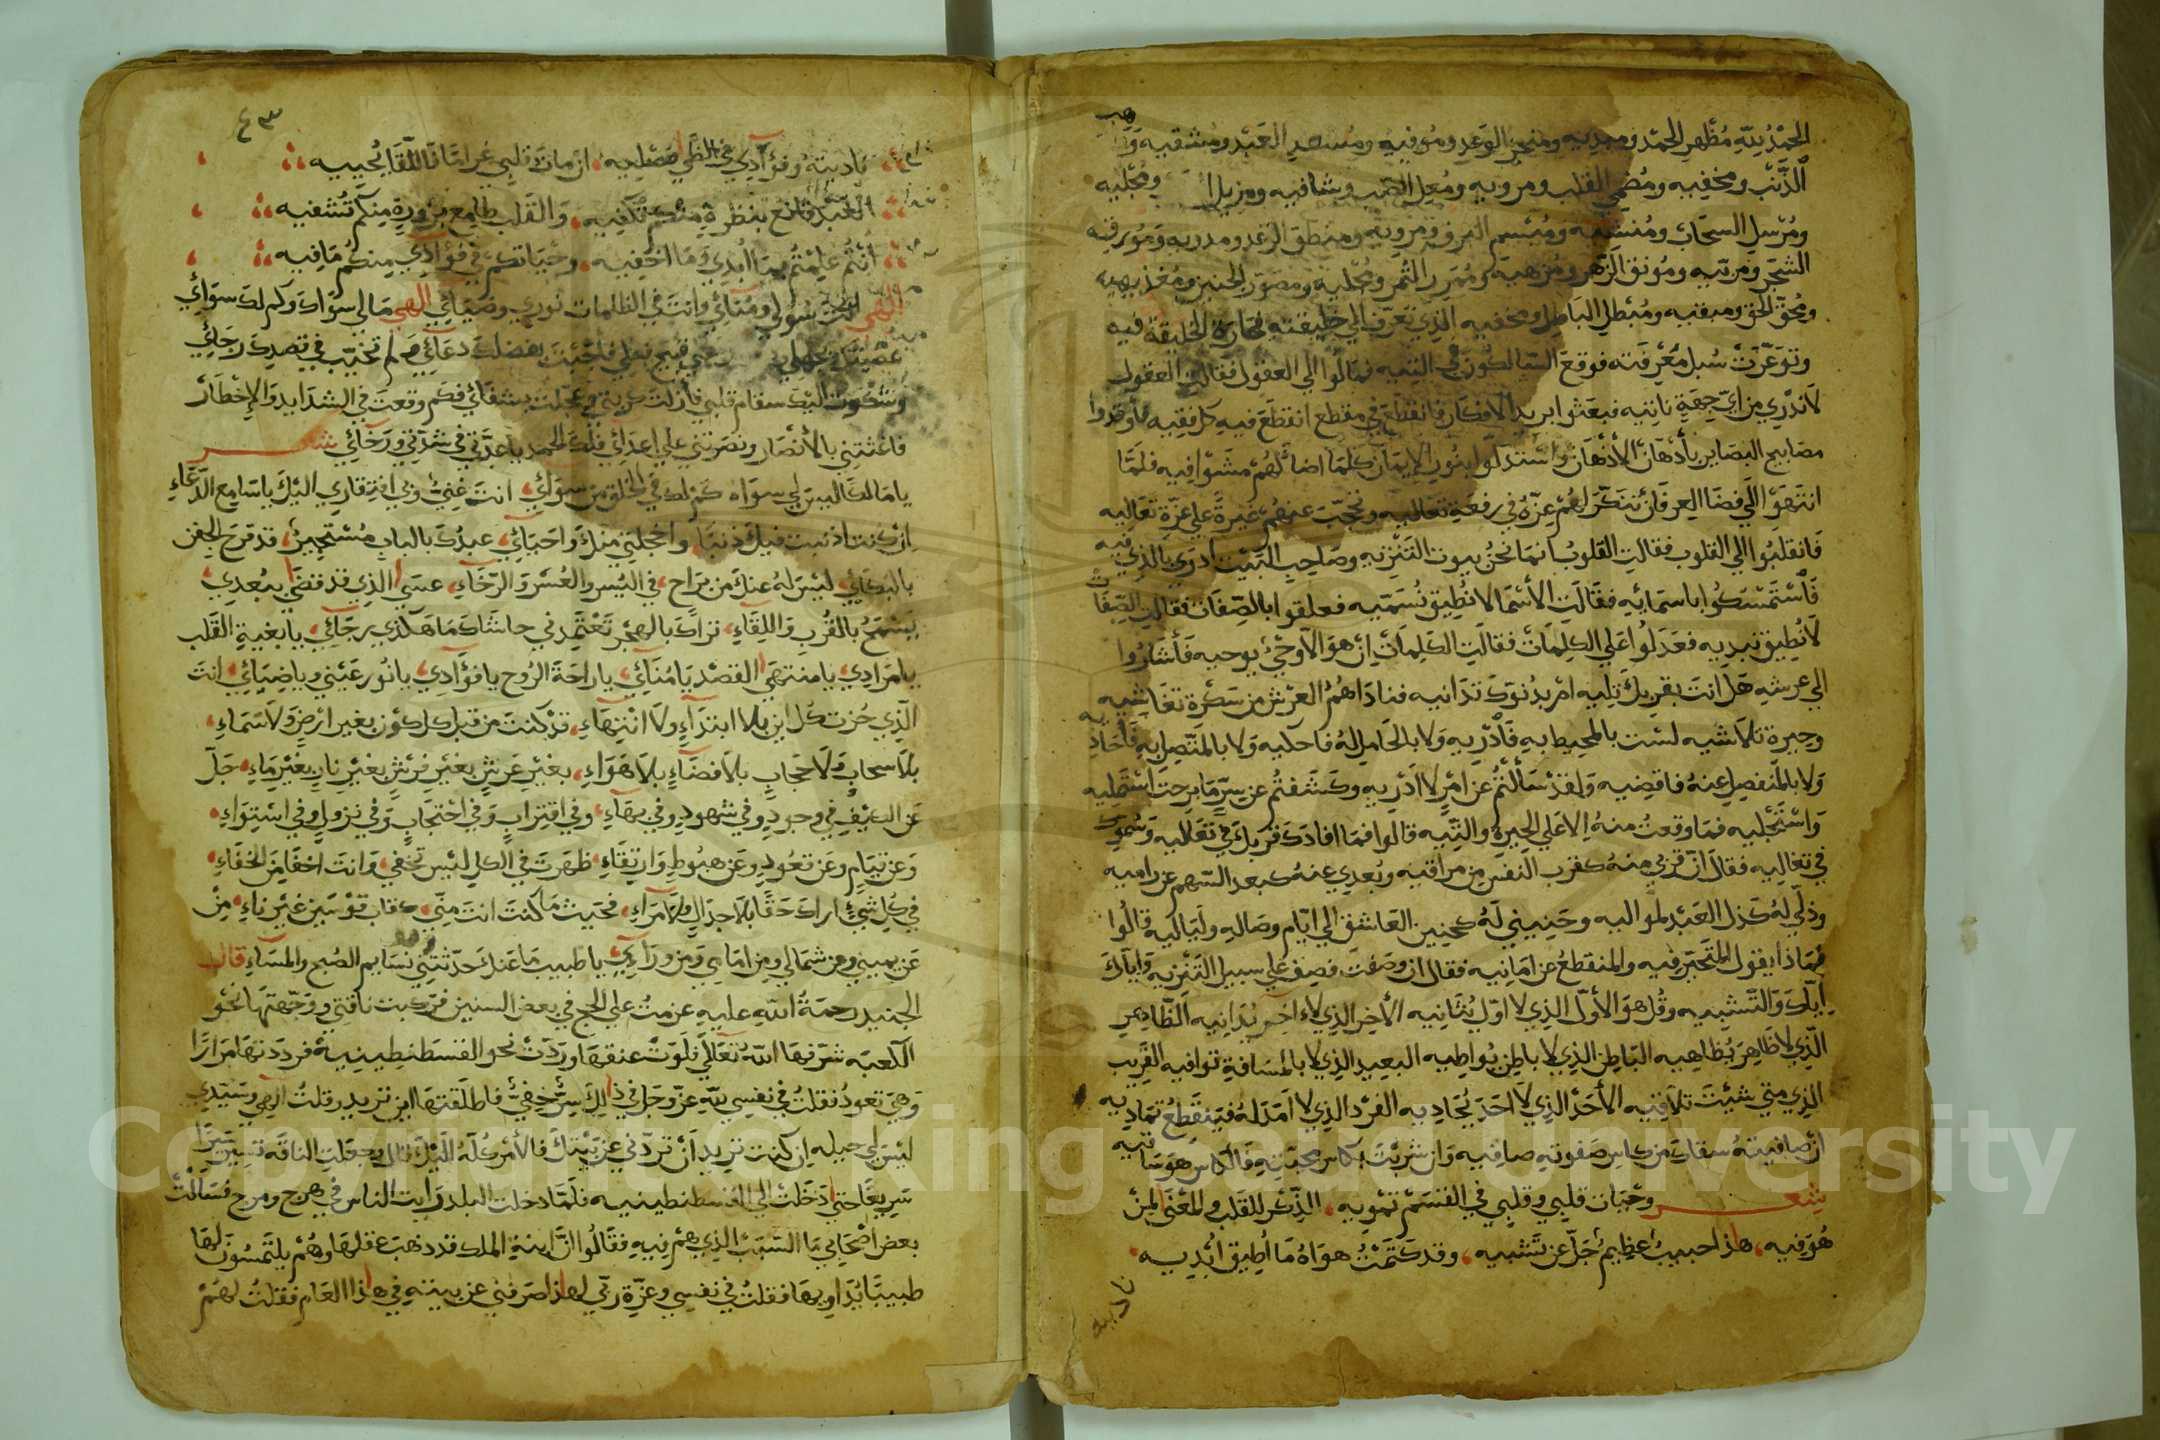 الحَمْدُ لِلّهِ مُظْهِرِ الحَمْدِ ومبديه ومنجز الوَعدِ ومُوفيه ومُسعدِ العَبْدِ ومُشقيه وَ
الذَّنْبِ ومخفيه ومُضي القلب ومرويه ومُعِلّ الصب وشافيه ومزيل ومُجْليه
ومُرْسِلِ السَّحَابِ ومُنشيه ومُبْسِمِ البرق ومرويه ومنطق الرَّعْدِ ومدريه وَمُورق
الشجَر ومربّيه ومُونق الزَّهر ومُزهيه ومُمَرِّر الثمر ومُحْليه ومصَوّر الجنين ومُغذيه
ومُحقّ الحَقّ ومبقيه ومُبْطِلِ البَاطِل ومخفيه الذي تعرّف الي خليقته فحارة الخليقة فيه
وتوَعّرَتْ سُبل مَعْرفته فوقعَ السَّالكون في التيه فمَالُوا الي العقول فقالت العقول
لاندري من ايّ جهةٍ ناتيه فبعَثوا بريد الأفكار فانقطعَ في مقطع انقطعَ فيه كل فقيه فاوقدوا
مصَابيح البصَاير بأدهان الأذهَان واستدلّوا بنُور الإيمَان كلمَا اضاء لهُمْ مَشَوْا فيه فلمَّا
انتَهَوْا الَي فضَا العِرفَان تنكّر لهُمْ عِزّهُ في رفعَةِ تعَاليه وتحجّبَ عنهُم غيرَةً علي عزّة تعَاليه
فَانقلبُوا الي القلوب فقالت القلوبُ انما نحنُ بيوت التَنْزيه وصَاحِب البَيْت ادرَي بالذي فيه
فَاسْتَمْسَكُوا باسمَائه فقَالَت الأسْمَا لا نُطِيق نُسَمّيه فعلقوا بالصِّفَات فقالت الصّفَات
لا نُطيق نبديه فعَدَلُوا عَلي الكلِمَات فقالَتِ الكلِمَات إن هوَ الا وَحْيٌ يوحيه فَأشَارُوا
الي عرشه هَل انتَ بقربك تليه ام بدُنوك تدَانيه فنادَاهُمُ العرْش من سَكرة تغَاشيه
وحيرة تلاشيه لسْت بالمحيط به فَادْريه وَلا بالحَامِل لهُ فاحكيه ولا بالمتّصِل به فَاحَاذِيه
وَلا بالمنفصِل عنهُ فاقصيه وَلقد سَألْتُم عن امْرٍ لا ادْريه وكشَفتُم عن سِرّ مَا برحتَ اسْتَمْليه
وَاسْتَجْليه فمَا وقعتُ منهُ الا عَلي الحِيرَة والتِّيه قالوا فمَا افادك قربكَ في تعَاليه وَسُمُوّك
في تغَاليه فقالَ انّ قربي منهُ كقرب النفس من مراقيه وبُعدي عنهُ كبعد السّهم عن راميه
وذلّي لهُ كذل العَبْد لمواليه وحَنيني لَهُ كحنين العَاشق الي ايّام وصَاله وليَاليه قالُوا
فمَاذا يقول المتَحيّر فيه والمنقطعُ عن امَانيه فقال ان وصَفتَ فصِف علي سبيل التنزيه وَايّاكَ
ايّاكَ وَالتّشبيه وقُل هوَ الأوّل الذي لا اوّل يُثانيه الأخر الذي لا اخر يُدانيه الظّاهر
الّذي لا ظَاهِر يُظاهيه البَاطن الذي لا باطن يُواطيه البعيد الذي لا بالمسَافةِ توافيه القريب
الذي متي شئتَ تلاقيه الأحَدُ الذي لا احَدَ يُحَاديه الفرْد الذي لا امَدَ لهُ فينقطِعُ تماديه
ان صَافيتهُ سقاكَ من كاسِ صَفوته صَافيه وَان شربْتَ بكاس محبّته فالكاس هوَ سَاقيه
شعر وحُبّان قلبي وقلبي في القسَمْ تمْويه، الذّكر للقلب والمعْنَي لمنْ
هُوَ فيه، هاذا حبيبٌ عظِيمٌ جَلّ عن تشبيه، وقد كتمْتُ هوَاهُ مَا اُطِيق اُبْديه
ناديته
٤٣
ناديته وفؤادي في لظي صليه، ان مات قلبي غرامًا فاللقَا يُحييه
العَبْد قانع بنظرةٍ منكم تكفيه، وَالقَلب طامع بزورةٍ منكم تُشفيه
انتُم علِمْتُم بمَا اُبدي وَمَا اخفيه، وحيَاتكم في فؤادي منكُم مَا فيه
الهي انت سُولي ومُنَائي وانتَ في الظلمات نوري وضيَائي الهي مَا لي سوَاك وكم لك سوَائي
عصيتك بجهلي قبيح فعلي فاجَبْتَ بفضلك دعَائي ولم تخيّب في قصدِك رجَائي
وشكوت اليكَ سقام قلبي فأزلت كربتي وعجّلت بشفائي فكم وقعت في الشدايد والإخطار
فاغثتني بالأنْصَار ونصَرتني علي اعدَائي فلكَ الحمد يا عدّتي في شدّتي ورخَائي شعر
يا مَالكًا ليسَ لي سوَاه كم لك في الخلق من سوَائي، انت غنيٌّ وبي افتِقاري اليْكَ يا سَامع الدُّعَاءِ
ان كنت اذنبت فيكَ ذنبًا، واخجلتي منكَ واحيَائي، عبدُكَ بالباب مُسْتجيرٌ، قد قرّح الجفن
بالبكائي، ليْسَ لهُ عنكَ من برَاح، في اليُسْر والعُسْر وَالرّخَاءِ، عسَي الذي قد قضَي ببعدي،
يَسْمَحُ بالقُرب وَاللِّقَاءِ، تراكَ بالهجْر تعْتمدني حاشَاكَ مَا هكذي رجَائي، يا بغيةِ القلب
يا مرَادي، يا منتهَي القصْد يا مُنَائي، يا رَاحَة الرُّوح يا فؤادي، يا نُور عَيْني ويا ضيَائي، انتَ
الّذي حُزت كُل اين بلا ابتدَاءٍ ولا انتِهَاءِ، قد كنتَ من قبل كل كوْن بغير ارضٍ ولا سَمَاءِ،
بلا سحابٍ ولا حجَابٍ بلا فضَاءٍ بلا هَوَاءِ، بغيْر عرشٍ بغَيْر فرْشٍ بغَيْر نارٍ بغيْر مَاءِ، جَلّ
عَن الكيْفِ في وجودٍ وفي شهودٍ وفي بهَاءِ، وفي اقترابٍ وَفي احْتجَابٍ وَفي نزولٍ وفي استِوَاءِ،
وَعَن قيَامٍ وعَن قعُودٍ وعَن هبُوطٍ وَارتقاءِ، ظهَرتَ في الكل ليْسَ تخفي، وَانتَ اخفَا من الخفَاءِ،
في كل شيْءٍ اراكَ حَقًّا بلا جدَالٍ ولا مرَاءِ، فحَيث مَا كنتَ انتَ منّي، كقاب قوسَين غيْر ناءٍ، مِنْ
عَن يميني وعن شمَالي ومِن امَامي وَمن ورَاءِي، يا طبيب مَا عَندكَ حَدّثتني نسَايم الصّبح والمسَاءِ قال
الجنيد رحمَةُ الله عليهِ عزمتُ علي الحج في بعض السنين فركبت ناقتي ووجّهتهَا نحْو
الكعبَه شرّفها اللهُ تعَالي فلوَت عنقهَا ورَدّتْ نحو القسطنطينيّه فرددتهَا مرَارًا
وَهيَ تعود فقلتُ في نفسِي لله عزّ وجَل في ذالِكَ سِرٌّ خفيٌّ فاطلقتهَا اين تريد وقلتُ الهي وسَيّدي
ليْسَ لي حيله ان كنت تريد أن تردّني عن بَيْتك فالأمر كُلّهُ اليْكَ قال وجعَلت الناقه تسِير سَيْرًا
سَريعًا حتي دَخَلتْ الي القسطنطينيه فلمَّا دخلت البلد رَايت الناس في هرج ومرج فسَألتُ
بعض اصْحَابي مَا السّبَبُ الذي هم فيهِ فقَالُوا انّ ابنة الملك قد ذهبَ عقلهَا وهُم يلتَمسُونَ لهَا
طبيبًا يُدَاويهَا فقلتُ في نفسِي وعزّة ربّي لهاذا صَرفني عن بيته في هاذا العَام فقلتُ لهُمْ
Copyright © King Saud University